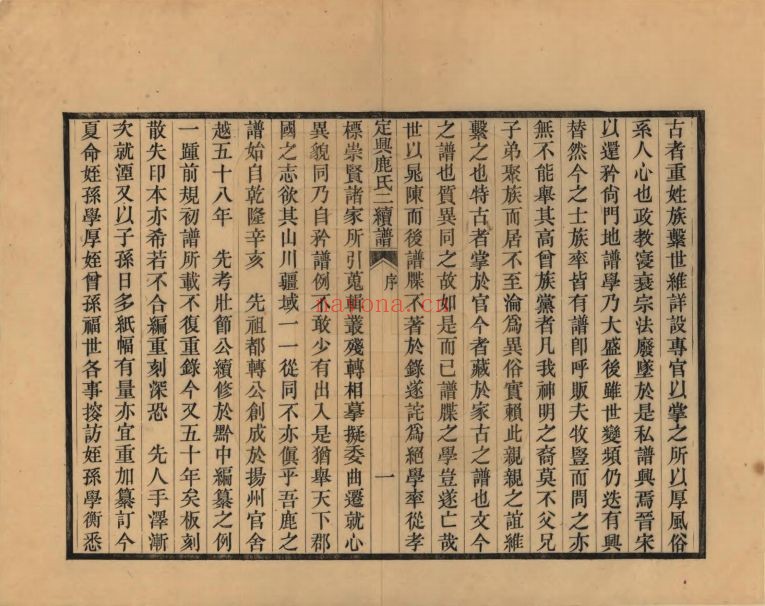 古者重姓族繫世維詳設專官以掌之所以厚風俗
系人心也政教寖衰宗法廢墜於是私譜興焉晉宋
以還矜尚門地譜學乃大盛後雖世變頻仍迭有興
替然今之士族率皆有譜卽呼販夫牧豎而問之亦
無不能舉其高曾族黨者凡我神明之裔莫不父兄
子弟聚族而居不至淪爲異俗實賴此親親之誼維
繫之也特古者掌於官今者藏於家古之譜也文今
之譜也質異同之故如是而已譜牒之學豈遂亡哉
世以晁陳而後譜牒不著於錄遂詫爲絕學率從孝
定興鹿氏二續譜 序 一
標崇賢諸家所引蒐輯叢殘轉相摹擬委曲遷就心
異貌同乃自矜譜例不敢少有出入是猶舉天下郡
國之志欲其山川疆域一一從同不亦傎乎吾鹿之
譜始自乾隆辛亥 先祖都轉公創成於揚州官舍
越五十八年 先考壯節公續修於黔中編纂之例
一踵前規初譜所載不復重錄今又五十年矣板刻
散失印本亦希若不合編重刻深恐 先人手澤漸
次就湮又以子孫日多紙幅有量亦宜重加纂訂今
夏命姪孫學厚姪曾孫福世各事搜訪姪孫學衡悉
nayona.cn